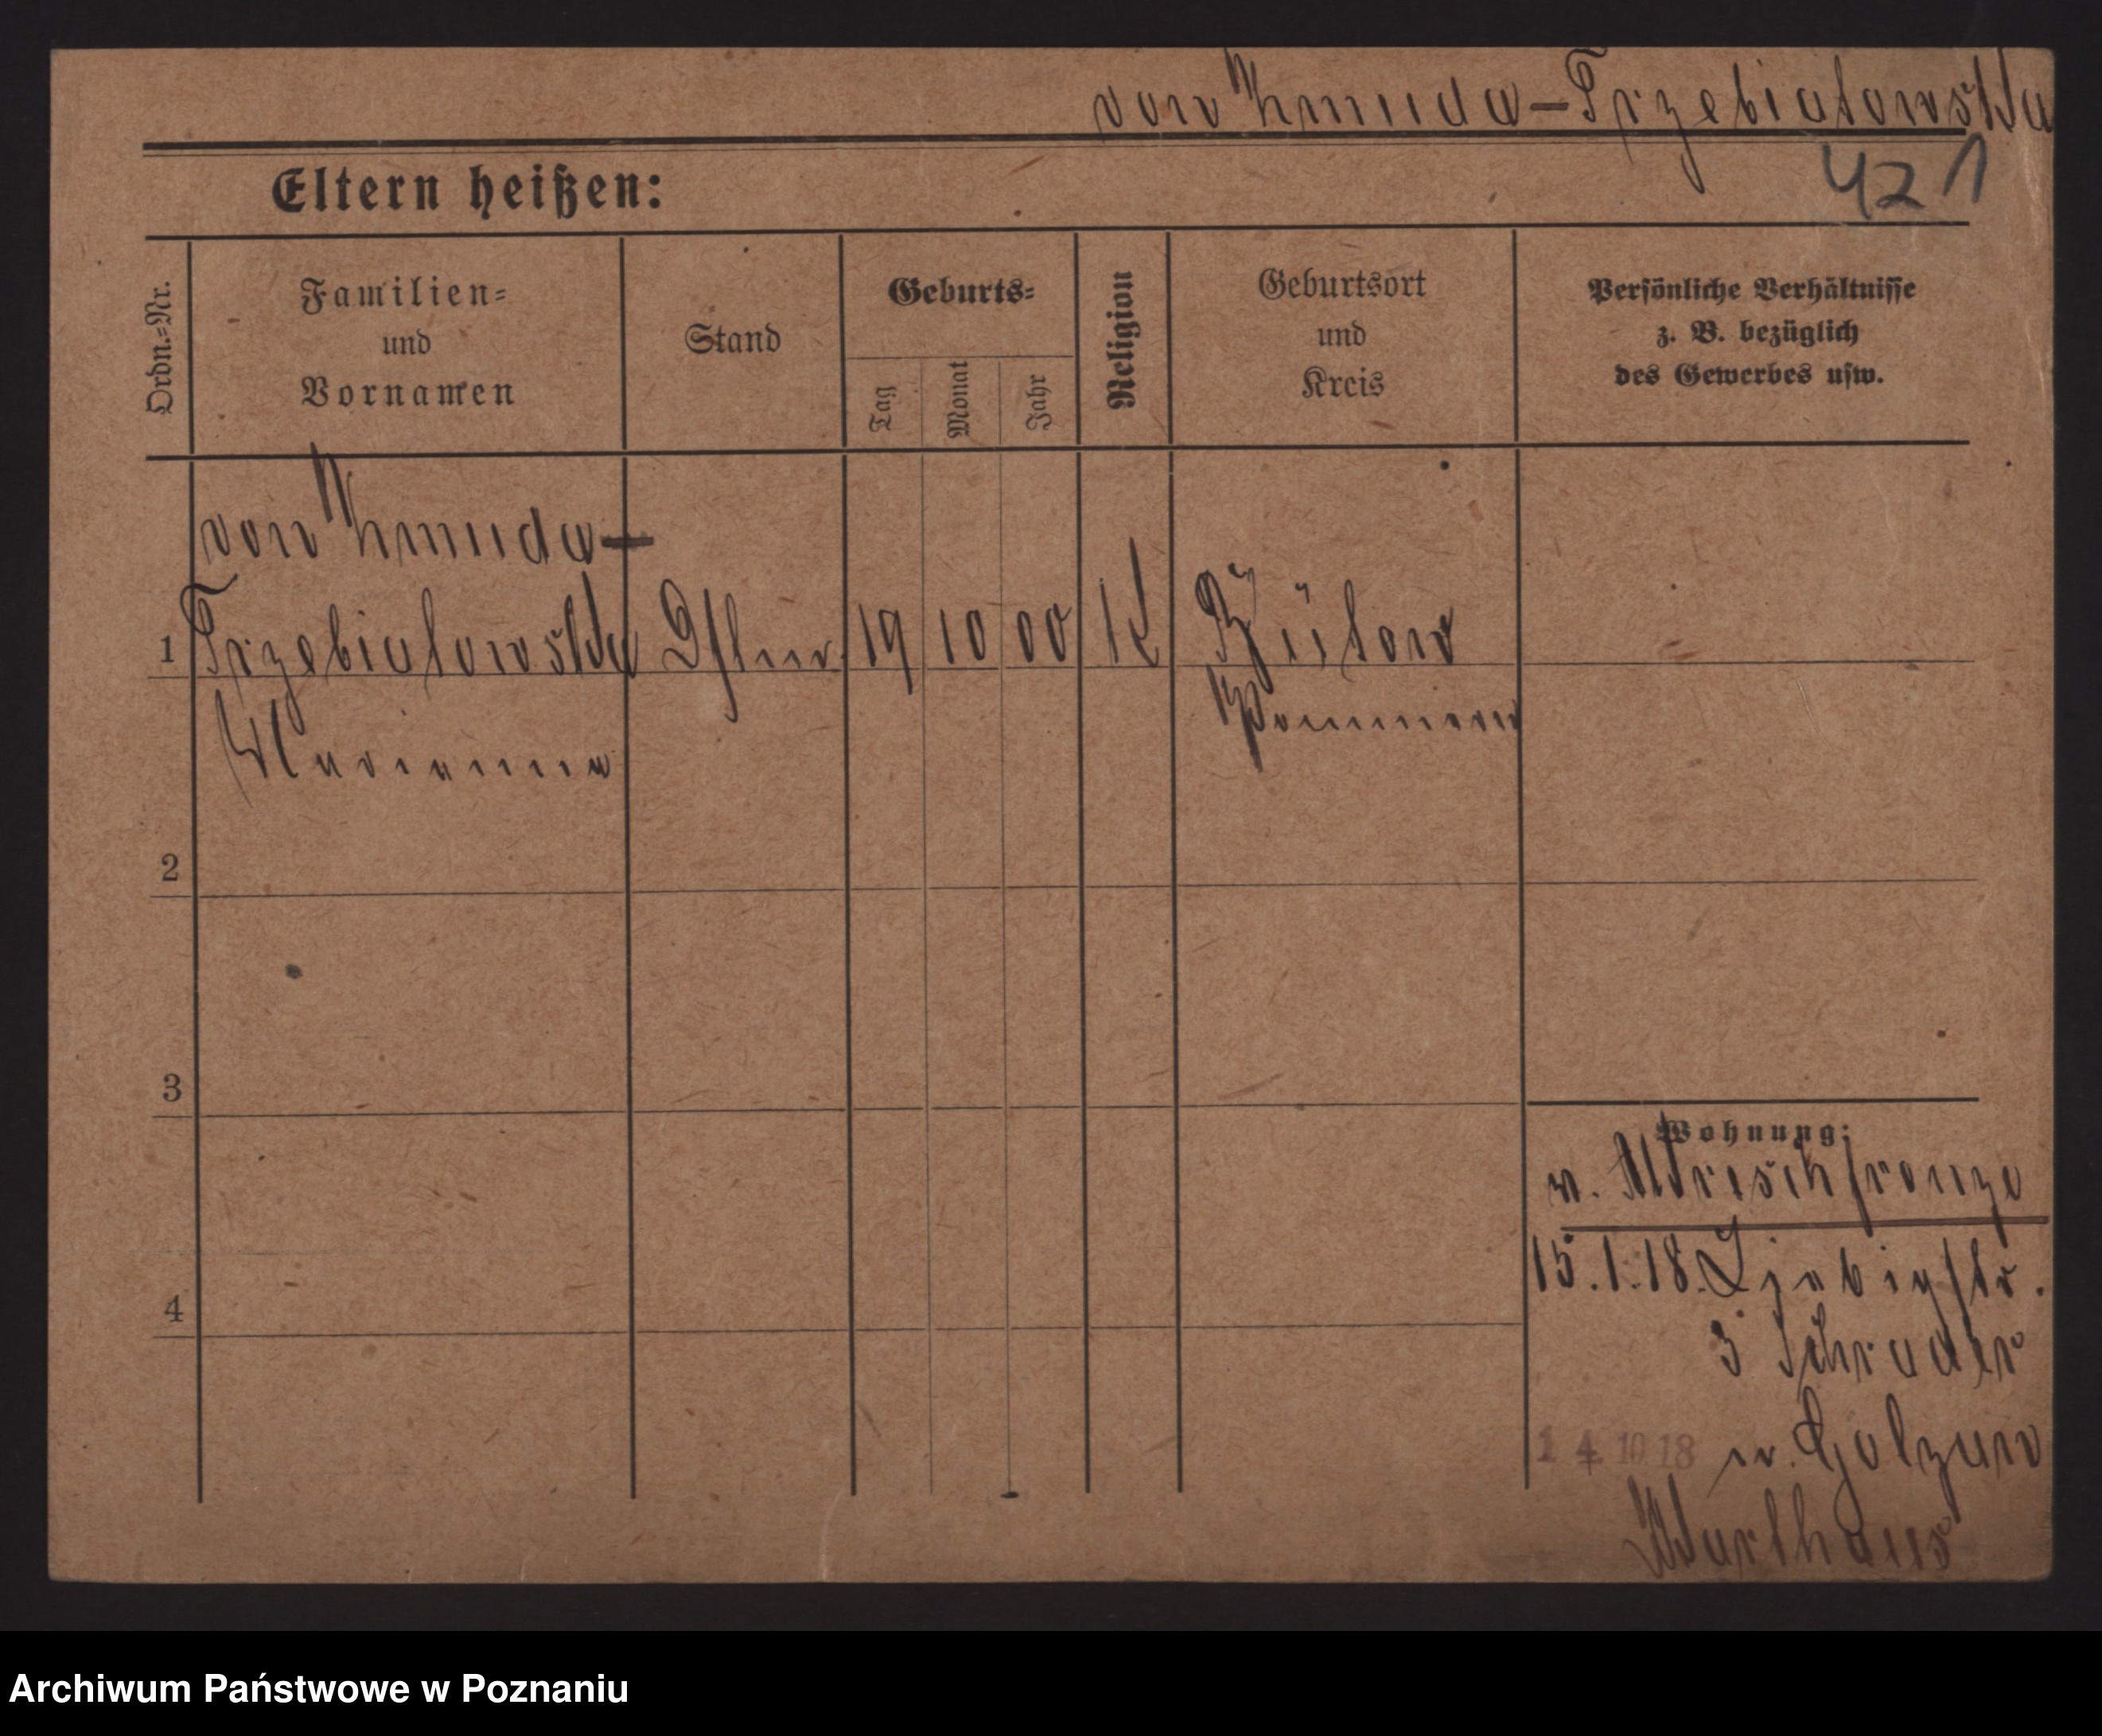 von Kmuda-Trzebiatowska
421
Eltern heißen:
Ordn.=Nr.
Familien=
und
Vornamen
Stand
Geburts=
Tag
Monat
Jahr
Religion
Geburtsort
und
Kreis
Persönliche Verhältnisse
z. B. bezüglich
des Gewerbes usw.
von Kmuda-
1 Trzebiatowska 19 10 00 K Bütow
Marianna Pommern
2
3
Wohnung:
n.
15.1.18. Liebigstr.
4
3 Schrader
14 10 18 n.
Warthaus
Archiwum Państwowe w Poznaniu